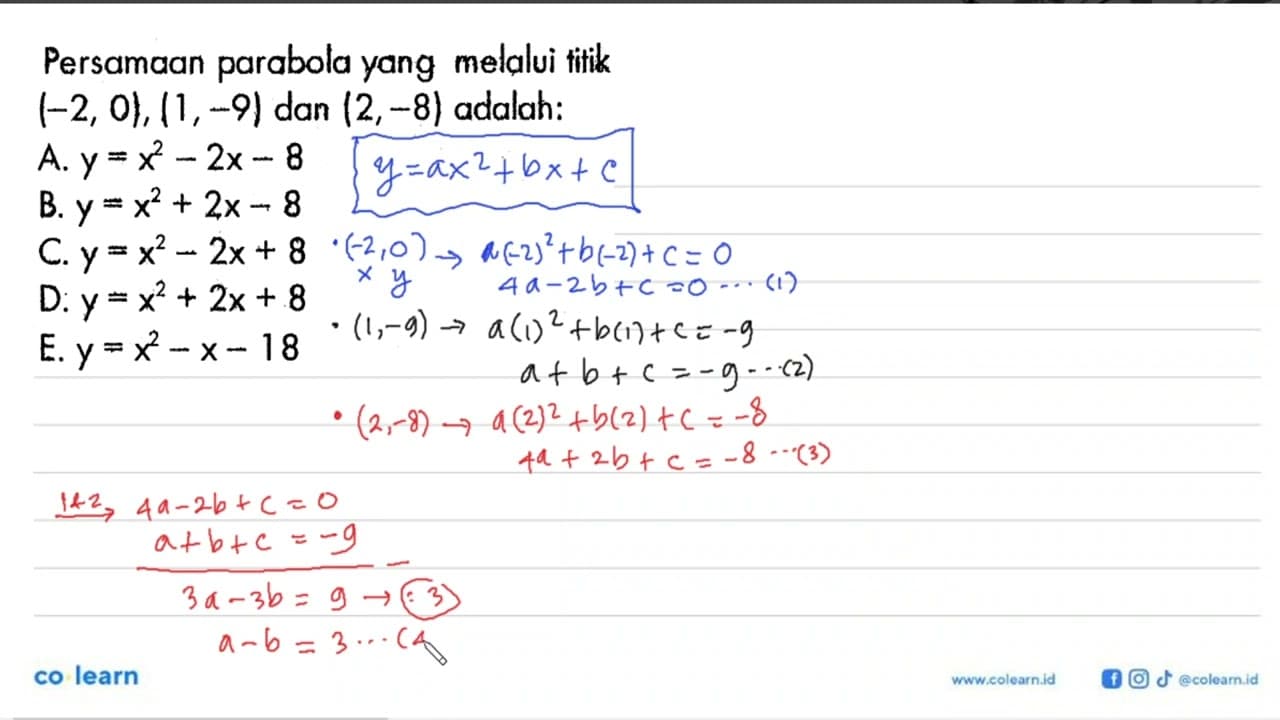 Persamaan parabola yang melalui titik
(-2, 0), (1, -9) dan (2, -8) adalah:
A. y = x² - 2x - 8
B. y = x² + 2x - 8
C. y = x² - 2x + 8
D. y = x² + 2x + 8
E. y = x² - x - 18
y=ax²+bx+c
• (-2,0) → a(-2)²+b(-2)+c=0
x y
4a-2b+c=0 ... (1)
• (1,-9) → a(1)²+b(1)+c=-9
a+b+c=-9 ... (2)
• (2,-8) → a(2)²+b(2)+c=-8
4a+2b+c=-8 ... (3)
1&2 → 4a-2b+c=0
a+b+c=-9
-
3a-3b=9 → :3
a-b=3 ... (4
co learn
www.colearn.id
@colearn.id